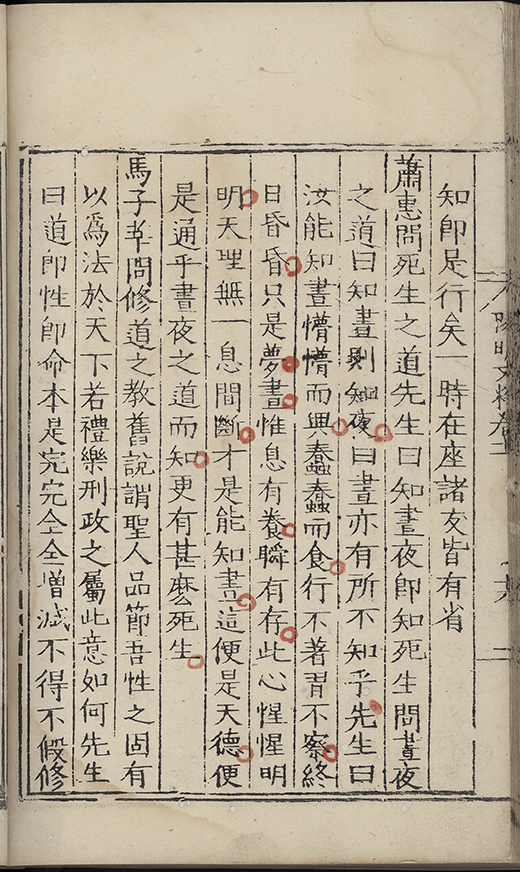 知即是行矣一時在座諸友皆有省
蕭惠問死生之道先生曰知晝夜即知死生問晝夜
之道曰知晝則知夜曰晝亦有所不知乎先生曰
汝能知晝懵懵而興蠢蠢而食行不著習不察終
日昏昏只是夢晝惟息有養瞬有存此心惺惺明
明天理無一息間斷才是能知晝這便是天德便
是通乎晝夜之道而知更有甚麽死生
馬子莘問修道之教舊說謂聖人品節吾性之固有
以爲法於天下若禮樂刑政之屬此意如何先生
曰道即性即命本是完完全全增减不得不假修